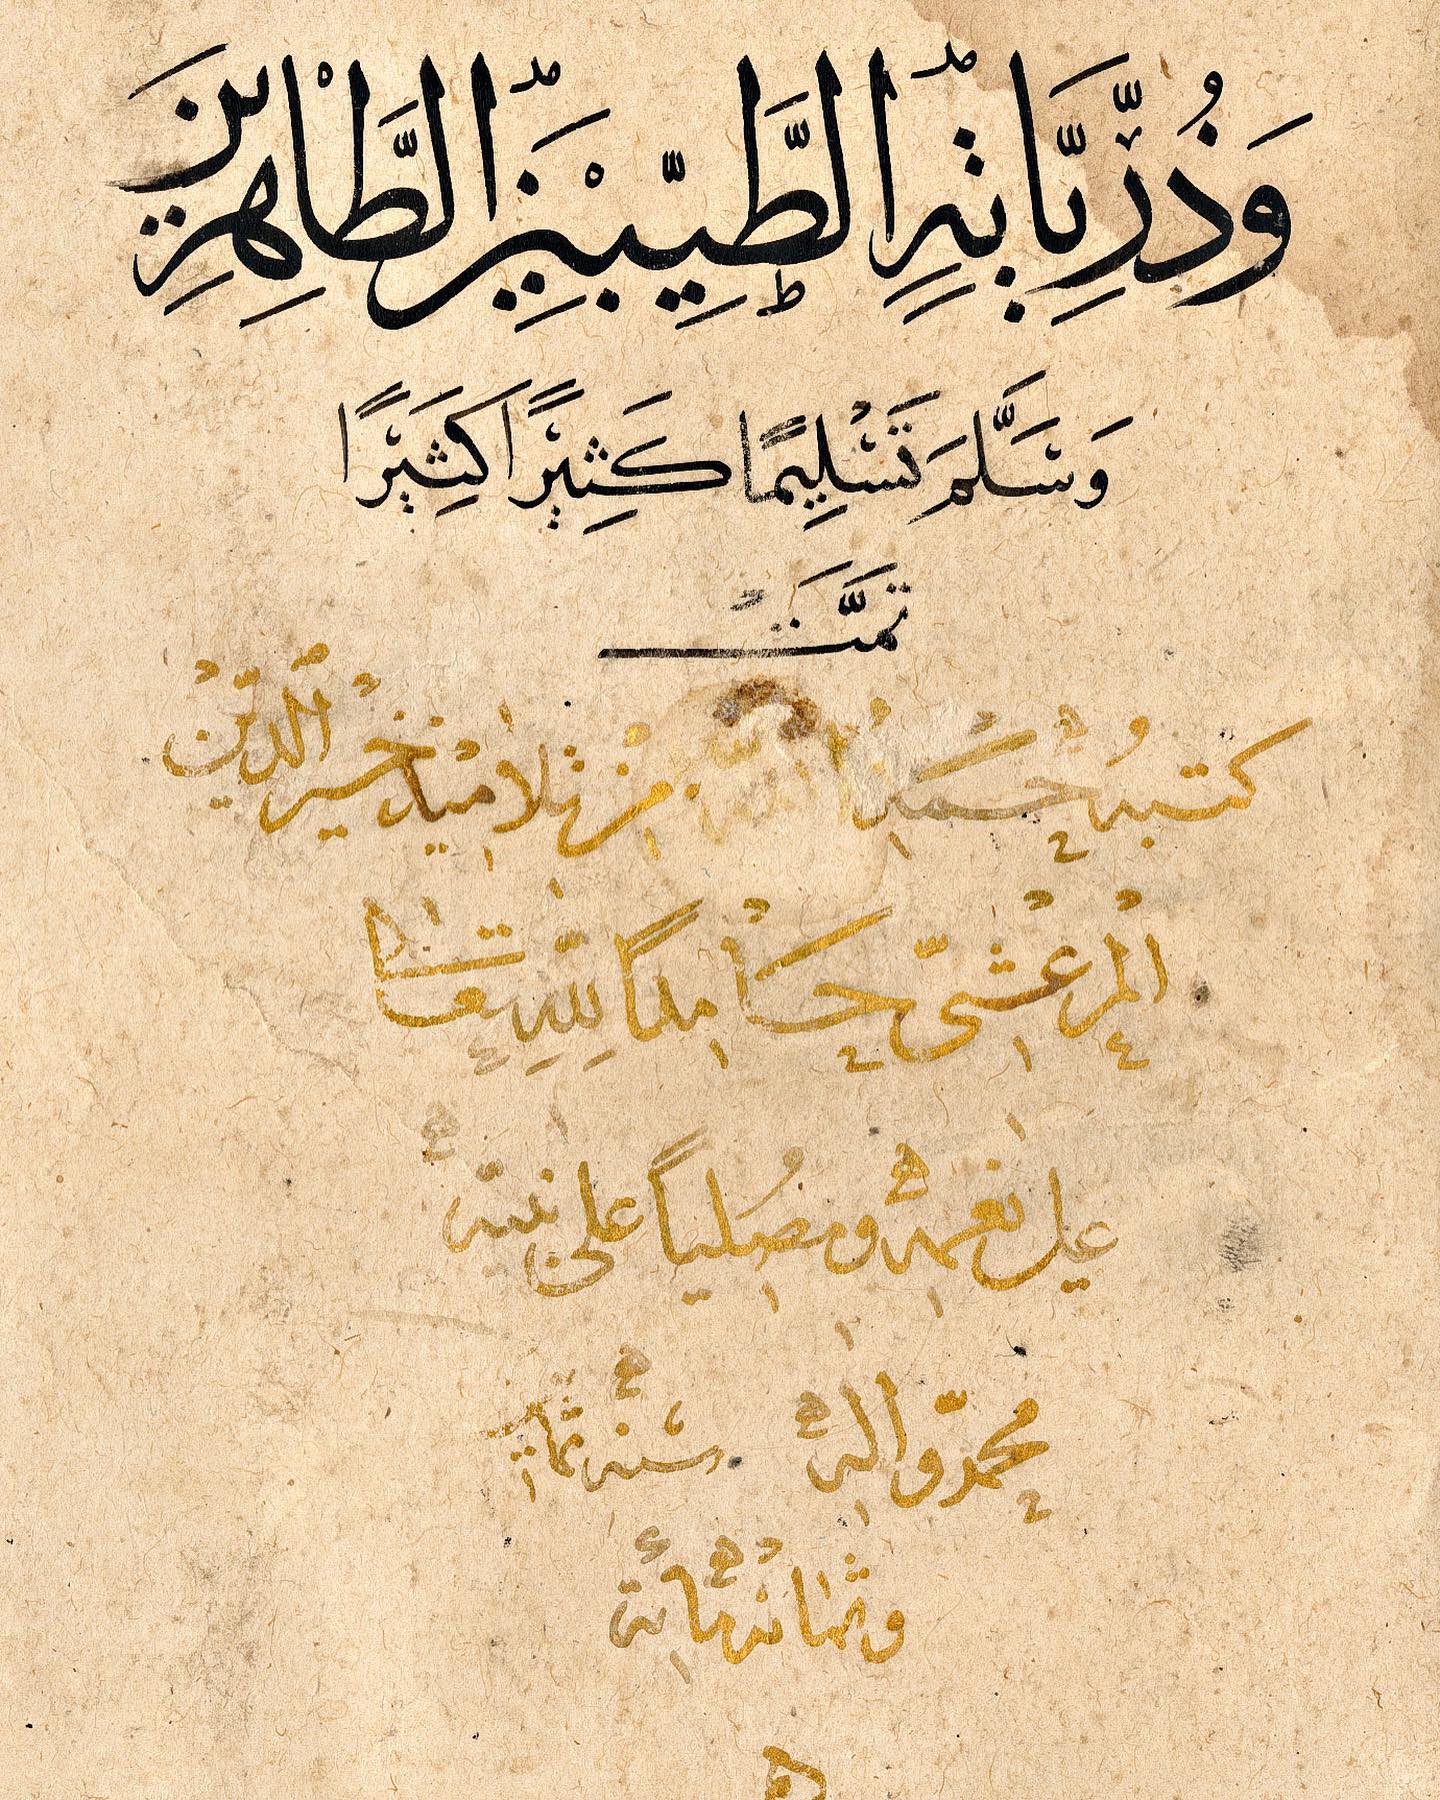 وَذُرِّيَّاتِهِ الطَّيِّبِيْنَ الطَّاهِرِيْنَ
وَسَلَّمَ تَسْلِيمًا كَثِيْرًا كَثِيْرًا
تمَّتْ
كتبهُ حمد الله من تلاميذ خير الدين
المرعشىّ حامداً للّٰهِ تعالى
على نعمه ومصلياً على نبيّه
محمّد وآله سنة ثمان
وثمانمائة